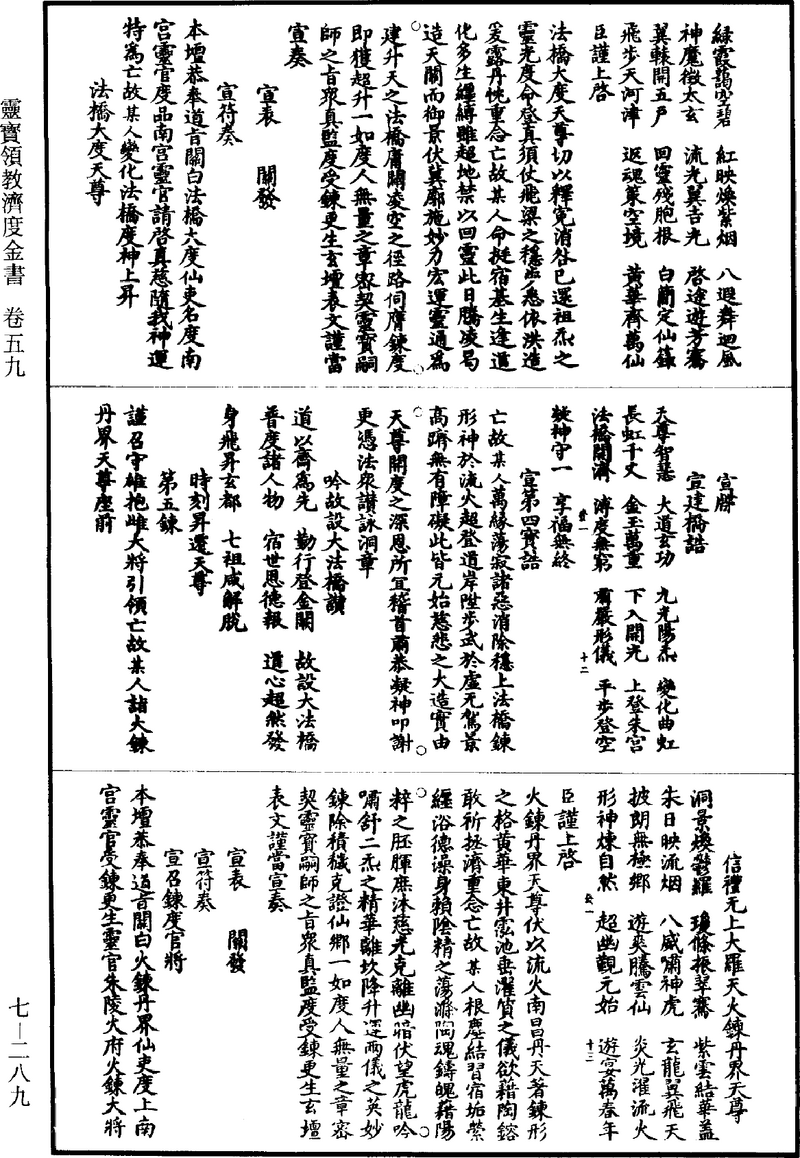 靈寶領教濟度金書　卷五九
七—二八九
綠霞藹空碧　紅映煥紫烟　八遐舞迴風
神魔徵太玄　流光翼吉光　啓途遊芳騫
翼轅開五戶　回靈殘胞根　白簡定仙錄
飛步天河津　返魂策空境　黃華齊萬仙
臣謹上啓
法橋大度天尊切以釋寃消咎已還祖炁之
靈光度命登真須仗飛梁之穩步悉依洪造
爰露丹忱重念亡故某人命挺宿基生逢道
化多生纏縛雖超地禁以回靈此日騰凌曷
造天關而御景伏冀廓施妙力宏運靈通爲
建升天之法橋庸闢凌空之徑路伺膺鍊度
即獲超升一如度人無量之章密契靈寶嗣
師之旨衆真監度受鍊更生玄壇表文謹當
宣奏
宣表　關發
宣符奏
本壇恭奉道旨關白法橋大度仙吏名度南
宮靈官度品南宮靈官請啓真慈隨我神運
特爲亡故某人變化法橋度神上昇
法橋大度天尊
宣牒
宣建橋誥
天尊智慧　大道玄功　九光陽炁　變化曲虹
長虹千丈　金玉萬重　下入開光　上登朱宮
法橋開濟　溥度無窮　肅嚴形儀　平步登空
十二
凝神守一　享福無終
宣第四寶誥
亡故某人萬緣蕩寂諸惡消除穩上法橋鍊
形神於流火超登道岸陞步武於虛无駕景
高躋無有障礙此皆元始慈悲之大造實由
天尊開度之深恩所冝稽首肅恭凝神叩謝
更憑法衆讚詠洞章
吟故設大法橋讚
道以齋爲先　勤行登金闕　故設大法橋
普度諸人物　宿世恩德報　道心超然發
身飛昇玄都　七祖咸解脫
時刻昇遷天尊
第五鍊
謹召守雄抱雌大將引領亡故某人詣火鍊
丹界天尊座前
信禮无上大羅天火鍊丹界天尊
洞景煥鬱羅　瓊條振翠騫　紫雲結華蓋
朱日映流烟　八威嘯神虎　玄龍翼飛天
披朗無極鄉　遊爽騰雲仙　炎光濯流火
形神煉自然　超幽觀元始　遊宴萬春年
十三
臣謹上啓
火鍊丹界天尊伏以流火南昌丹天著鍊形
之格黃華東井霐池垂濯質之儀欲藉陶鎔
敢祈拯濟重念亡故某人根塵結習宿垢縈
纏浴德澡身賴陰精之蕩滌陶魂鑄魄藉陽
粹之胚腪庶沐慈光克離幽暗伏望虎龍吟
嘯舒二炁之精華離坎降升逕兩儀之英妙
鍊除積穢克證仙鄉一如度人無量之章密
契靈寶嗣師之旨衆真監度受鍊更生玄壇
表文謹當宣奏
宣表　關發
宣符奏
宣召鍊度官將
本壇恭奉道旨關白火鍊丹界仙吏度上南
宮靈官受鍊更生靈官朱陵火府火鍊大將